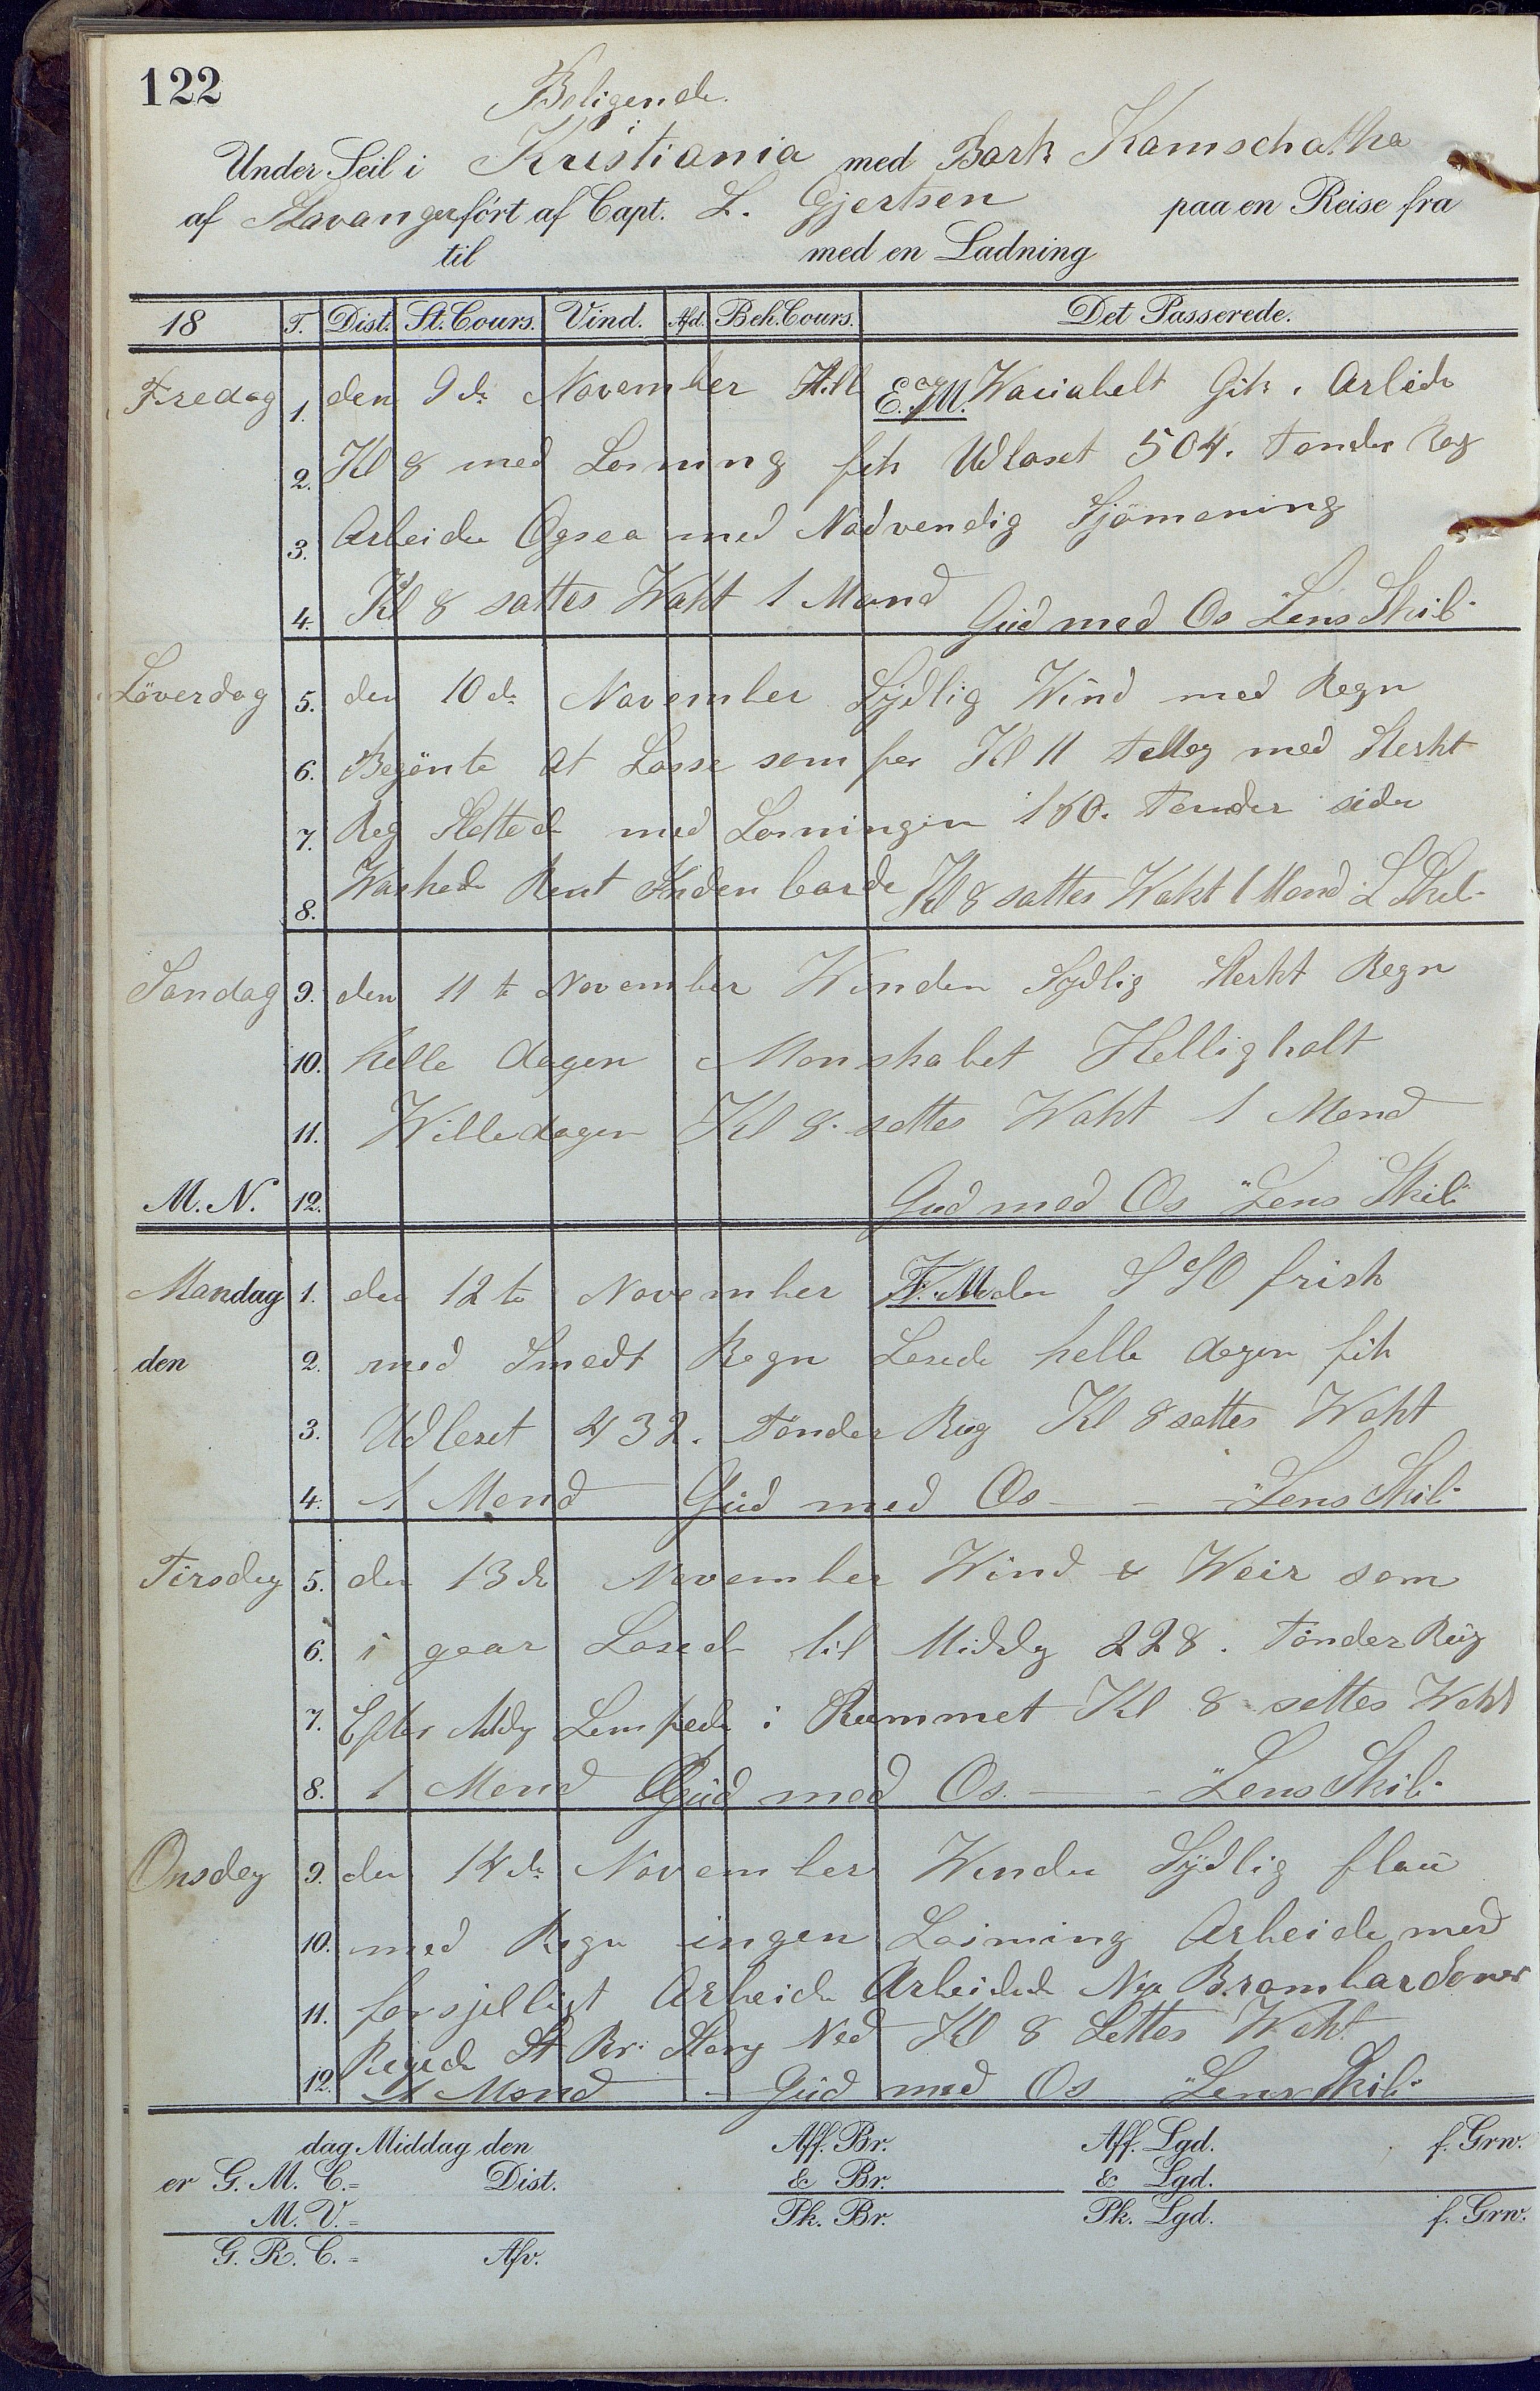 122
Beligende
Under Seil i Kristiania med Bark Kamschatka
af Stavanger fört af Capt. L. Gjertsen paa en Reise fra
til med en Ladning
18 T. Dist. St. Cours. Vind. Afd. Beh. Cours. Det Passerede.
Fredag 1. den 9de November E.M. Wariabelt Gik i Arbeide
2. Kl 8 med Losning fik Udloset 504. Tønder Rug
3. Arbeide Ogsea med Nødvendig Sjömaning
4. Kl 8 sattes Wakt 1 Mand Gud med Os Lens Skib
Löverdag 5. den 10de November Sydlig Wind med Regn
6. Begönte at Losse som før Kl 11 med Sterkt
7. Reg Sluttede med Losningen 160. Tønder siden
8. Waskede Rent Kl 8 sattes Wakt 1 Mand L Skib
Søndag 9. den 11te November Winden Sydlig Sterkt Regn
10. helle dagen Manskabet Helligholt
11. Willedagen Kl 8. sattes Wakt 1 Mand
M. N. 12. Gud med Os Lens Skib
Mandag 1. den 12te November F.M. SSO frisk
den 2. med Smodt Regn Losede helle dagen fik
3. Udloset 432. Tønder Rug Kl 8 sattes Wakt
4. 1 Mand Gud med Os - - Lens Skib
Tirsdag 5. den 13de November Wind & Weir som
6. i gaar Losede til Middg 228. Tønder Rug
7. Efter Mdg Lempede i Rummet Kl 8 sattes Wakt
8. 1 Mand Gud med Os. - - Lens Skib
Onsdag 9. den 14de November Winden Sydlig flau
10. med Regn ingen Losning Arbeide med
11. forsjelligt Arbeide Arbeidede Nye Brambardoner
12. St. Br. Stang Ned Kl 8 Settes Wakt
1 Mand - Gud med Os Lens Skib
dag Middag den Aff. Br. Aff. Lgd. f. Grw.
er G. M. C. = Dist. & Br. & Lgd.
M. V. = Pk. Br. Pk. Lgd. f. Grw.
G. R. C. = Afv.